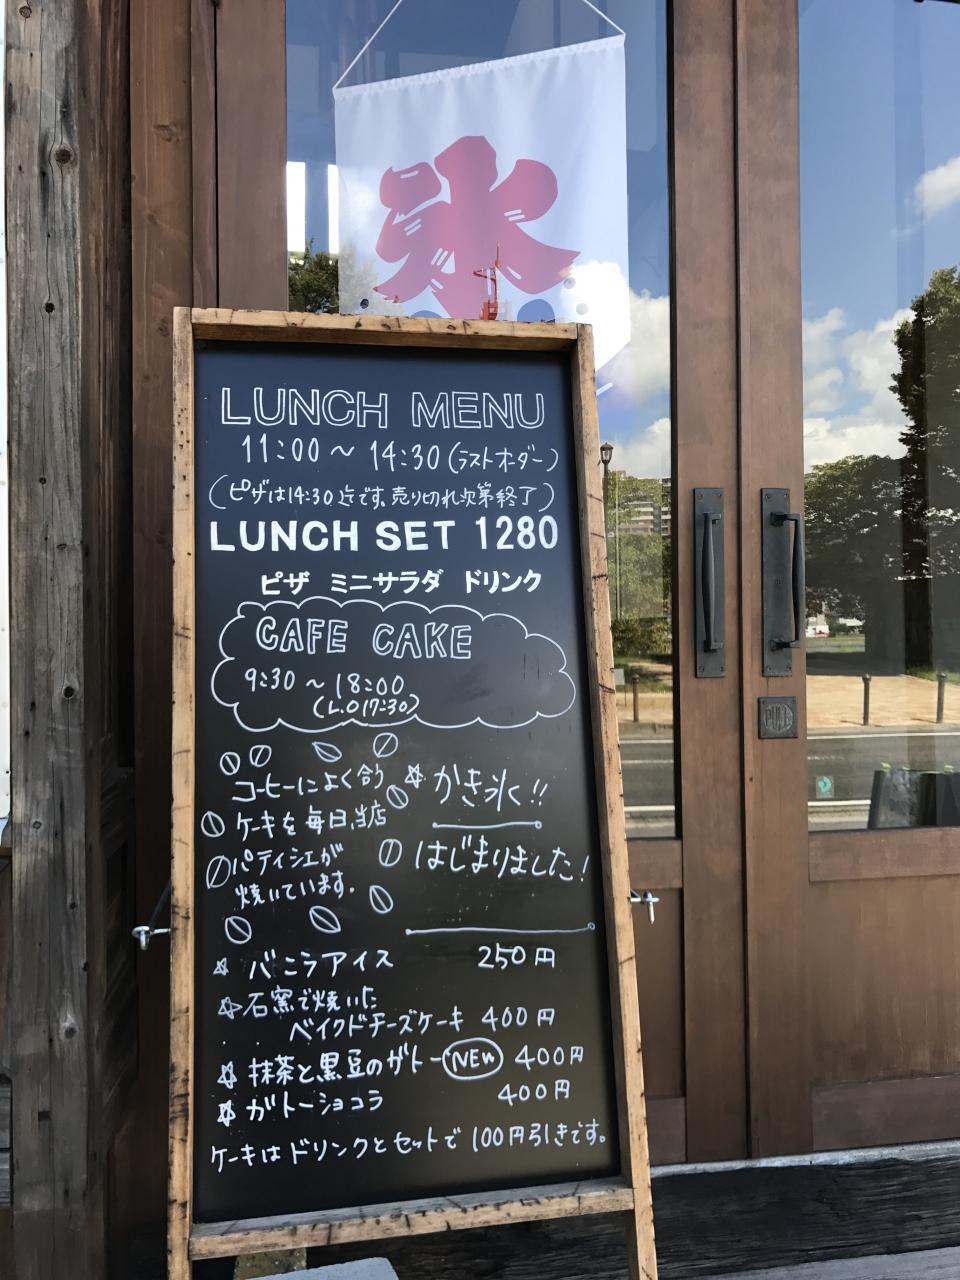 氷
LUNCH MENU
11:00 ~ 14:30 (ラストオーダー)
(ピザは14:30迄です。売り切れ次第終了)
LUNCH SET 1280
ピザ ミニサラダ ドリンク
CAFE CAKE
9:30 ~ 18:00
(L.O 17:30)
コーヒーによく合う
ケーキを毎日、当店
パティシエが
焼いています.
☆ かき氷!!
はじまりました!
☆ バニラアイス 250円
☆ 石窯で焼いた
ベイクドチーズケーキ 400円
☆ 抹茶と黒豆のガトー NEW 400円
☆ ガトーショコラ 400円
ケーキはドリンクとセットで 100円引きです。
PULL